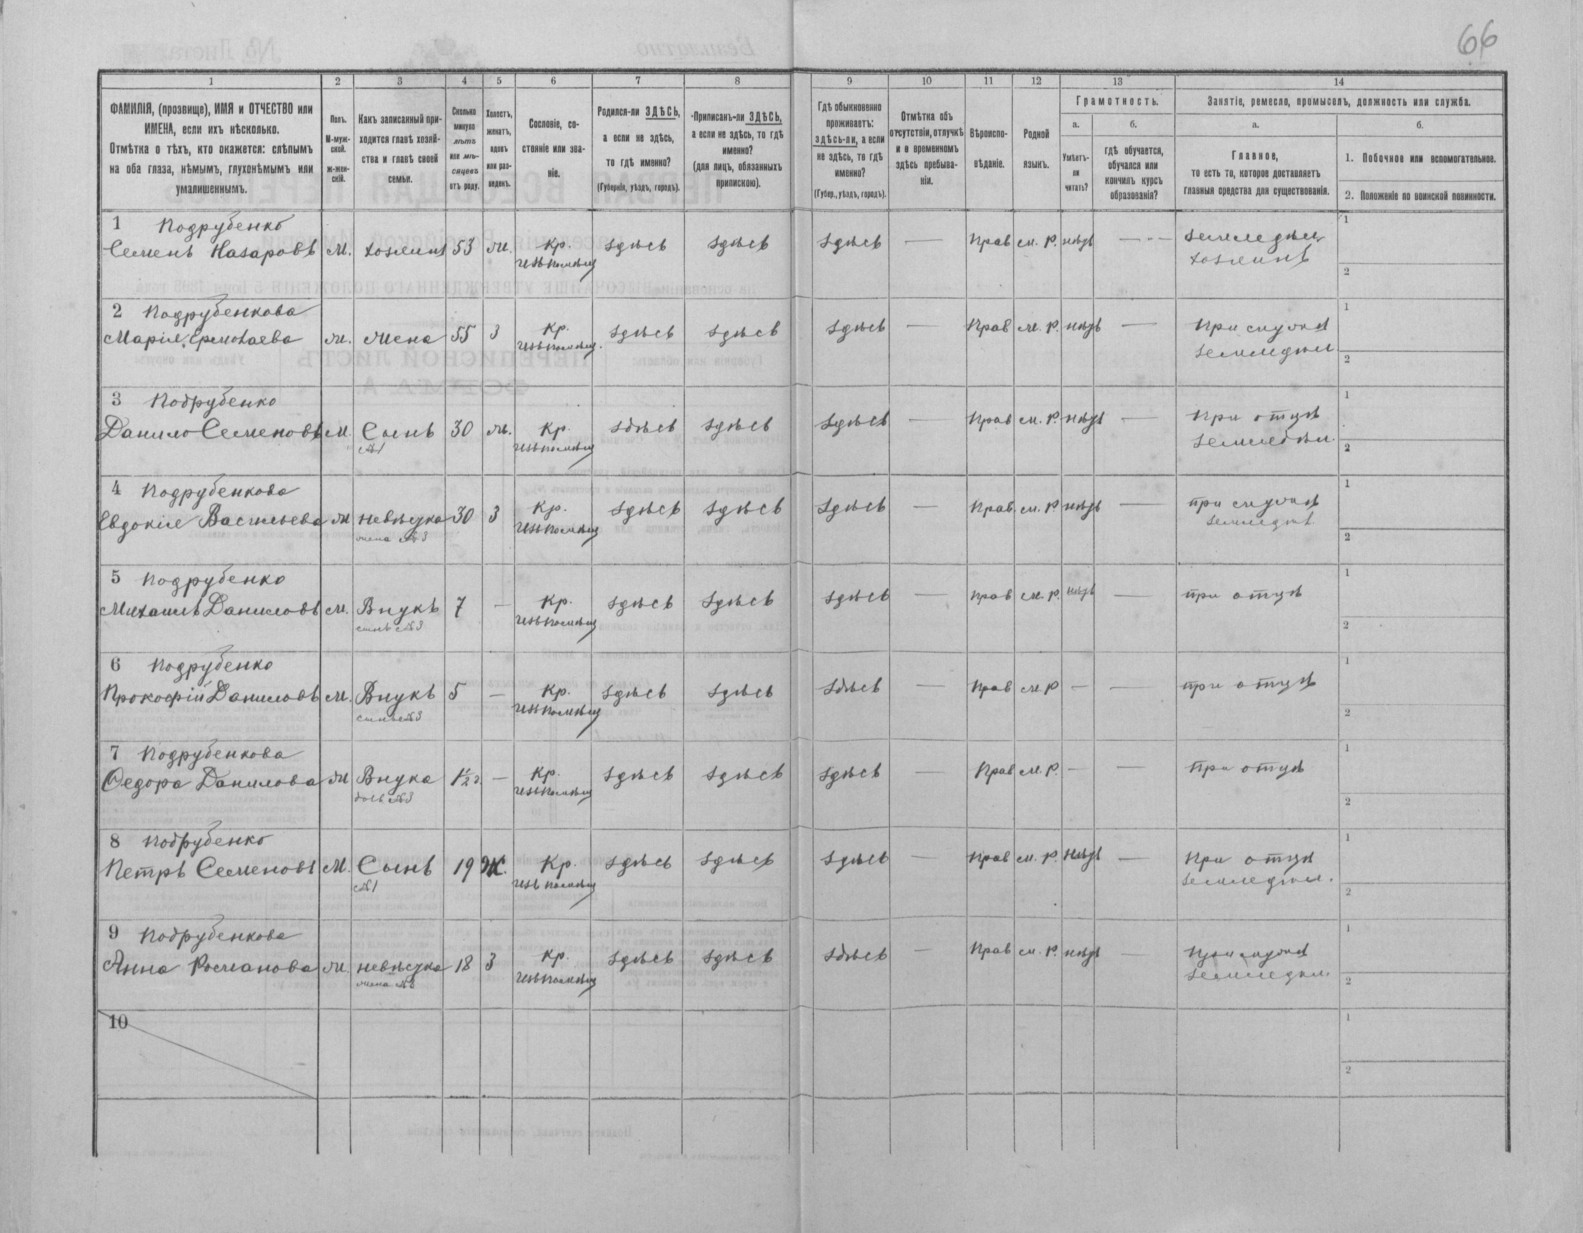 66
1 2 3 4 5 6 7 8 9 10 11 12 13 14
ФАМИЛІЯ, (прозвище), ИМЯ и ОТЧЕСТВО или
ИМЕНА, если ихъ нѣсколько.
Отмѣтка о тѣхъ, кто окажется: слѣпымъ
на оба глаза, нѣмымъ, глухонѣмымъ или
умалишеннымъ.
Полъ.
М-муж-
ской.
ж-жен-
скій.
Какъ записанный при-
ходится главѣ хозяй-
ства и главѣ своей
семьи.
Сколько
минуло
лѣтъ
или мѣ-
сяцевъ
отъ роду.
Холостъ,
женатъ,
вдовъ
или раз-
веденъ.
Сословіе, со-
стояніе или зва-
ніе.
Родился-ли ЗДѢСЬ,
а если не здѣсь,
то гдѣ именно?
(Губернія, уѣздъ, городъ).
Приписанъ-ли ЗДѢСЬ,
а если не здѣсь, то гдѣ
именно?
(для лицъ, обязанныхъ
припискою).
Гдѣ обыкновенно
проживаетъ:
здѣсь-ли, а если
не здѣсь, то гдѣ
именно?
(Губер., уѣздъ, городъ).
Отмѣтка объ
отсутствіи, отлучкѣ
и о временномъ
здѣсь пребыва-
ніи.
Вѣроиспо-
вѣданіе.
Родной
языкъ.
Грамотность.
а. б.
Умѣетъ-
ли
читать?
гдѣ обучается,
обучался или
кончилъ курсъ
образованія?
Занятіе, ремесло, промыселъ, должность или служба.
а. б.
Главное,
то есть то, которое доставляетъ
главныя средства для существованія.
1. Побочное или вспомогательное.
2. Положеніе по воинской повинности.
1 Подрубенко
Семенъ Назаровъ М. хозяинъ 53 ж. Кр. здѣсь здѣсь здѣсь — Прав м. Р. нѣтъ — земледѣл.
хозяинъ
1
2
2 Подрубенкова
Марія Ермолаева ж. жена 55 з Кр. здѣсь здѣсь здѣсь — Прав м. Р. нѣтъ — При мужѣ
земледѣл
1
2
3 Подрубенко
Данило Семеновъ М. Сынъ 30 ж. Кр. здѣсь здѣсь здѣсь — Прав м. Р. нѣтъ — При отцѣ
№1 земледѣл
1
2
4 Подрубенкова
Евдокія Васильева ж невѣстка 30 з Кр. здѣсь здѣсь здѣсь — Прав м. Р. нѣтъ — при мужѣ
жена №3 земледѣл
1
2
5 Подрубенко
Михаилъ Даниловъ М. Внукъ 7 — Кр. здѣсь здѣсь здѣсь — Прав м. Р. нѣтъ — при отцѣ
сынъ №3
1
2
6 Подрубенко
Прокофій Даниловъ М. Внукъ 5 — Кр. здѣсь здѣсь здѣсь — Прав м. Р — — при отцѣ
сынъ №3
1
2
7 Подрубенкова
Федора Данилова ж Внука 1/2 г. — Кр. здѣсь здѣсь здѣсь — Прав м. Р. — — при отцѣ
дочь №3
1
2
8 Подрубенко
Петръ Семеновъ М. Сынъ 19 Ж. Кр. здѣсь здѣсь здѣсь — Прав м. Р. нѣтъ — При отцѣ
№1 земледѣл.
1
2
9 Подрубенкова
Анна Романова ж невѣстка 18 з Кр. здѣсь здѣсь здѣсь — Прав м. Р. нѣтъ — При мужѣ
жена №8 земледѣл.
1
2
10
1
2